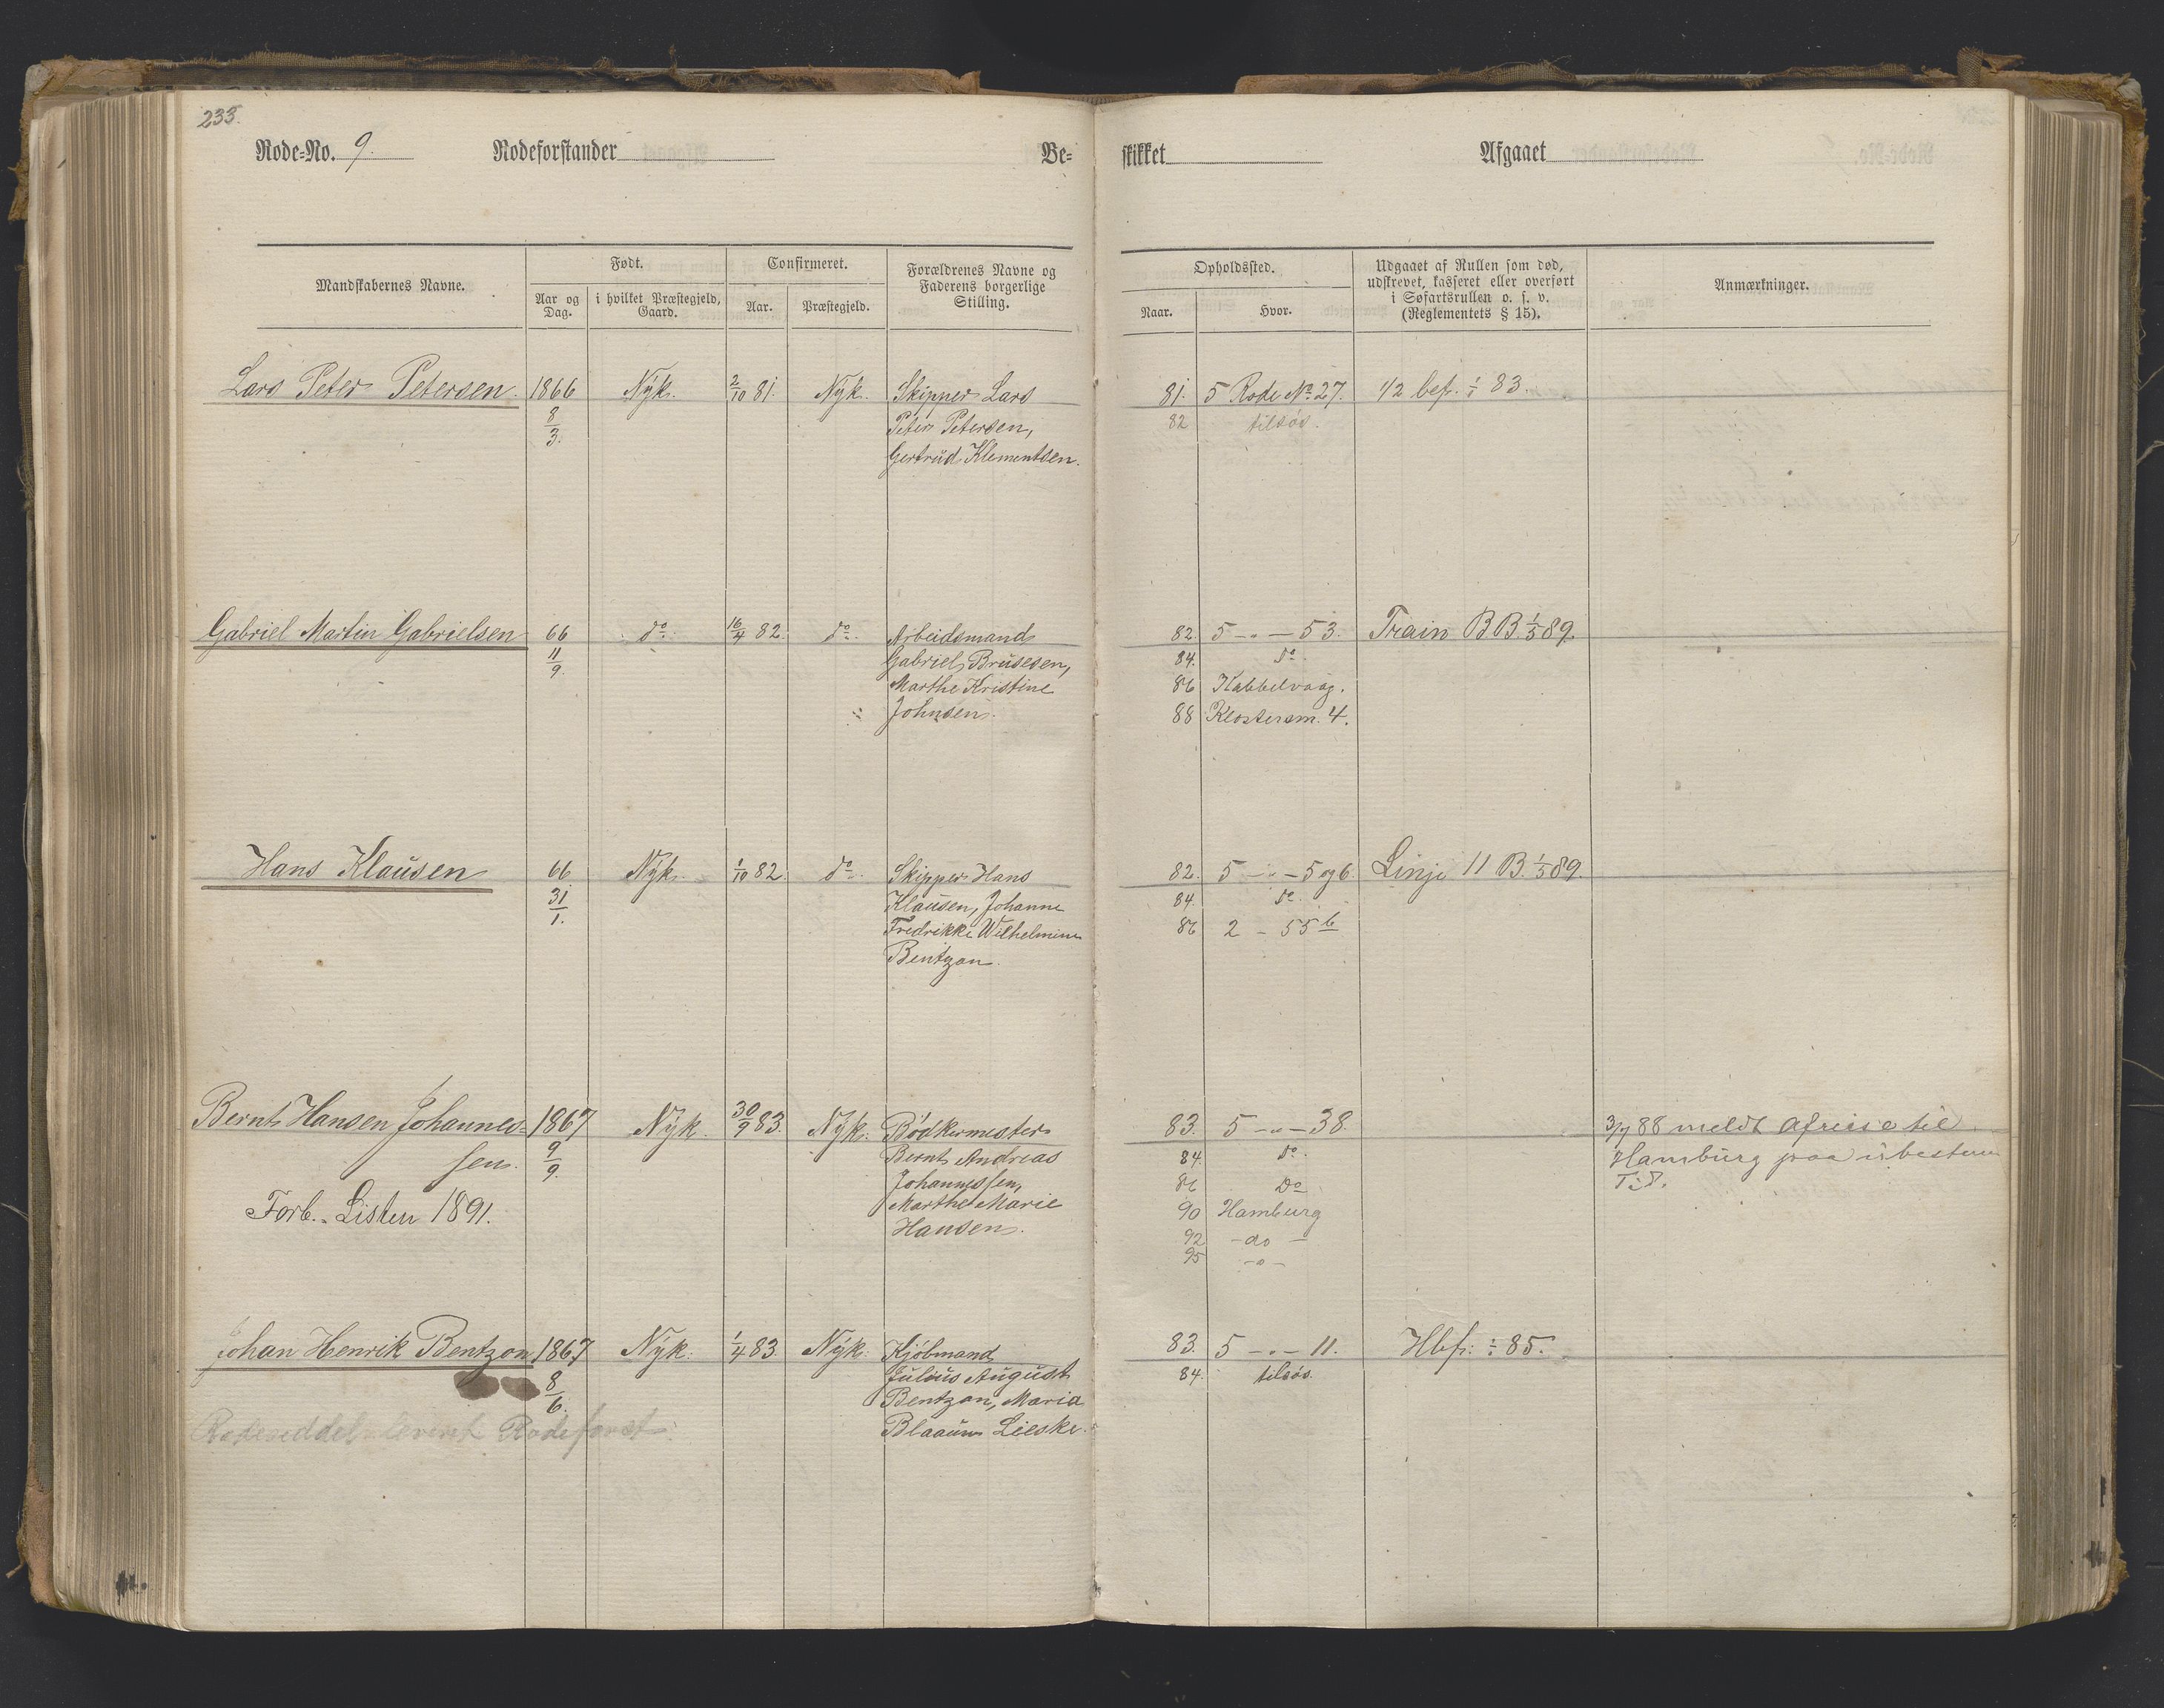 233.
Rode-No. 9. Rodeforstander Be-
skikket Afgaaet
Mandskabernes Navne.
Født.
Aar og Dag.
i hvilket Præstegjeld, Gaard.
Confirmeret.
Aar.
Præstegjeld.
Forældrenes Navne og
Faderens borgerlige
Stilling.
Opholdssted.
Naar.
Hvor.
Udgaaet af Rullen som død,
udskrevet, kasseret eller overført
i Søfartsrullen o. s. v.
(Reglementets § 15).
Anmærkninger.
Lars Peter Petersen. 1866 Nyk. 2/10 81. Nyk. Skipper Lars 81. 5 Rode No 27. 1/2 bef. ÷ 83.
8/3. Peter Petersen, 82 tilsøs.
Gertrud Klementsen.
Gabriel Martin Gabrielsen 66 do 16/4 82. do Arbeidsmand 82. 5 -„- 53. Train B B. 1/5 89.
11/9. Gabriel Brusesen, 84. do
Marthe Kristine 86 Kabbelvaag.
Johnsen. 88 Klostersm. 4.
Hans Klausen 66 Nyk. 1/10 82. do Skipper Hans 82. 5 -„- 5 og 6. Linje 11 B. 1/5 89.
31/1. Klausen, Johanne 84. do
Fredrikke Wilhelmine 86 2 - 55 b
Bentzon.
Bernt Hansen Johannes- 1867 Nyk. 30/9 83. Nyk. Bødkermester 83. 5 -„- 38. 3/7 88 meldt afreise til
sen. 9/9. Bernt Andreas 84. do Hamburg paa ubestem
Johannessen, 86 Do Tid.
Forb. Listen 1891. Marthe Marie 90 Hamburg
Hansen. 92 - do -
95 -„-
Johan Henrik Bentzon 1867 Nyk. 1/4 83. Nyk. Kjøbmand 83. 5 -„- 11. Hbf. ÷ 85.
8/6. Julius August 84. tilsøs.
Bentzon, Maria
Rodeseddel leveret Rodeforst. Blaauw Lieske.